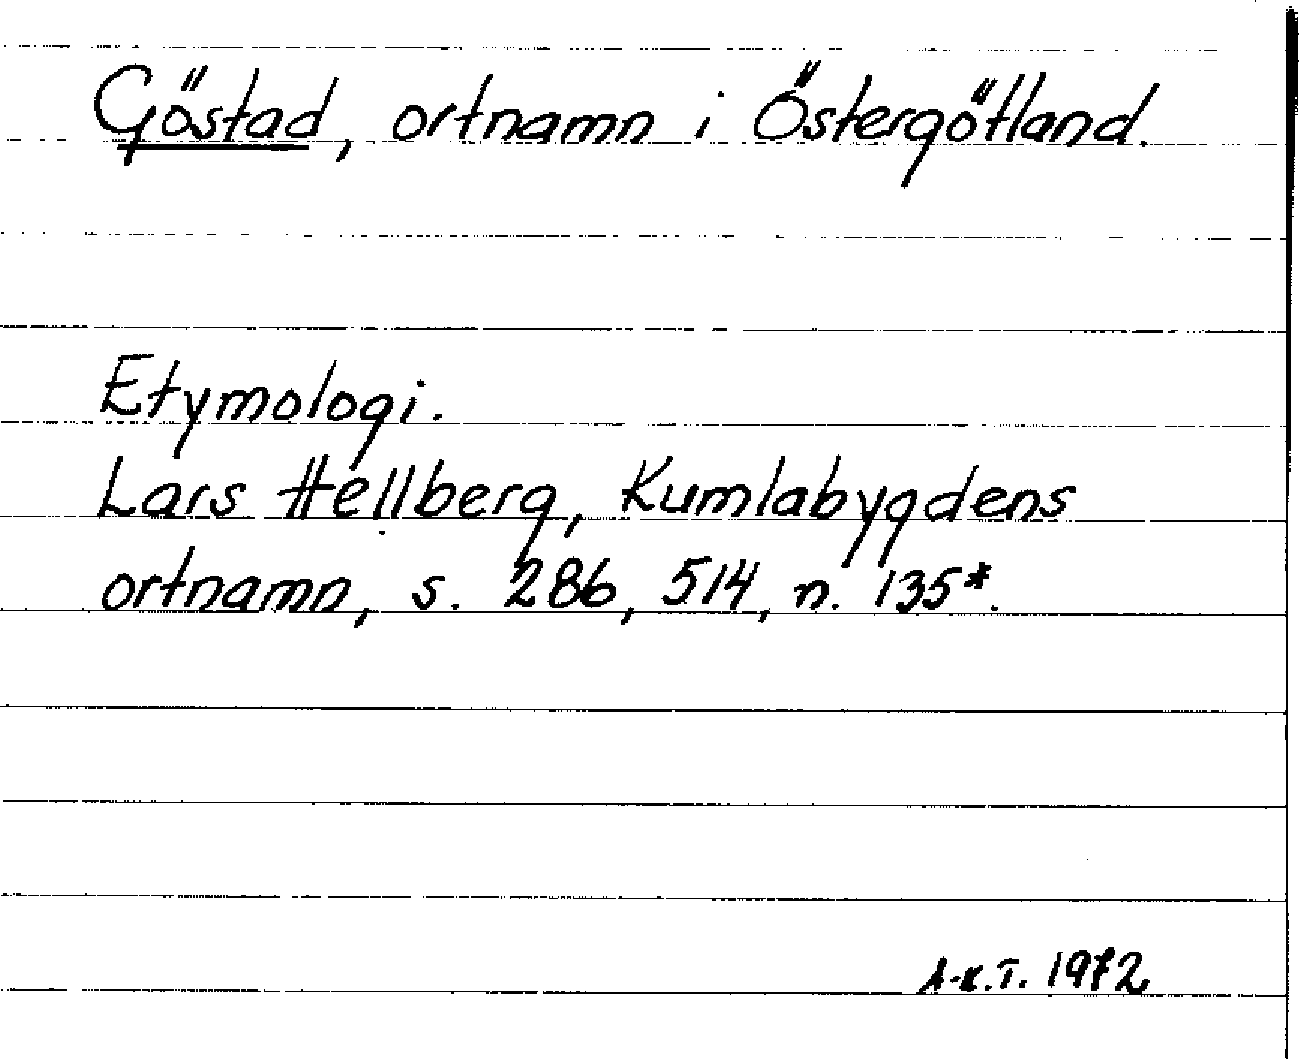 Göstad, ortnamn i Östergötland.
Etymologi.
Lars Hellberg, Kumlabygdens
ortnamn, s. 286, 514, n. 135*.
A-K.T. 1972